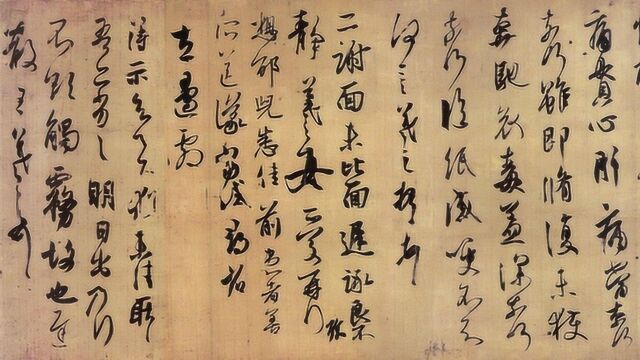 痛貫心肝痛當奈何
奈何雖即脩復未獲
奔馳哀毒益深奈何
奈何臨紙感哽不知
何言羲之頓首
二謝面未比面遲詠良不
靜羲之女愛再拜
想邵兒悉佳前患者善
所送議當試尋省
左邊劇
得示知足下猶未佳耿耿
吾亦劣劣明日出乃行
不欲觸霧故也遲
散王羲之頓首